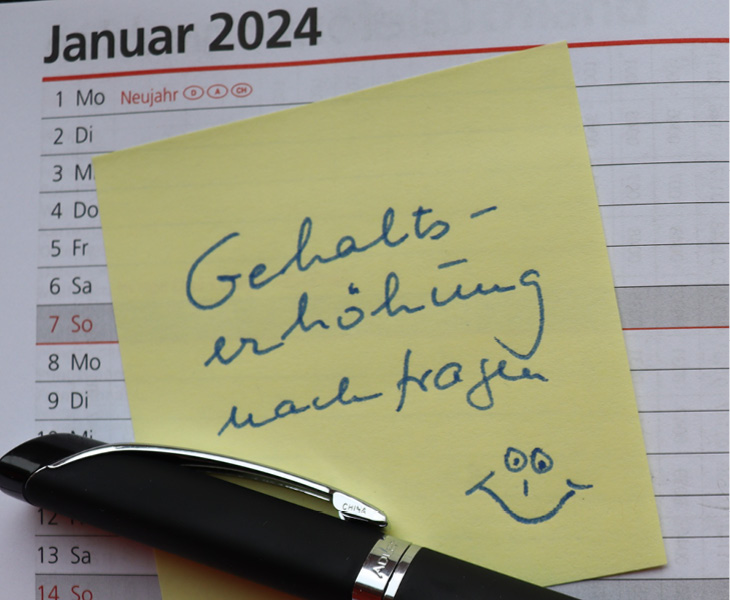 Januar 2024
1 Mo Neujahr D A CH
2 Di
3 M
4 Do
5 Fr
6 Sa
7 So
8 Mo
9 Di
10 Mi
12
13 Sa
14 So
Gehalts-
erhöhung
nachfragen
CHINA